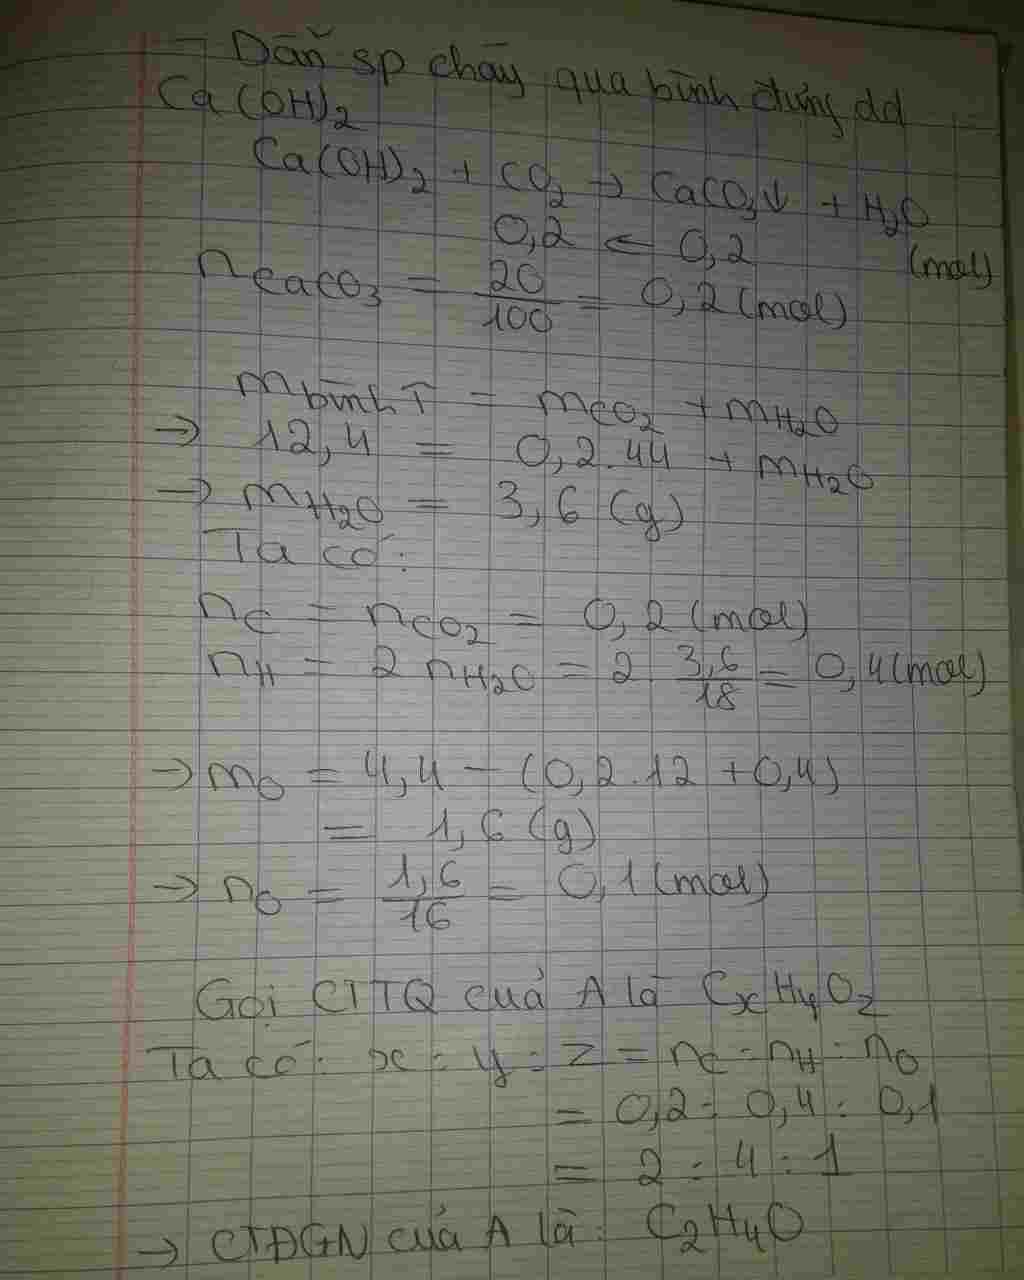 - Dẫn sp cháy qua bình đựng dd
Ca(OH)2
Ca(OH)2 + CO2 → CaCO3↓ + H2O
0,2 ← 0,2 (mol)
nCaCO3 = 20/100 = 0,2 (mol)
mbình↑ = mCO2 + mH2O
→ 12,4 = 0,2.44 + mH2O
→ mH2O = 3,6 (g)
Ta có:
nC = nCO2 = 0,2 (mol)
nH = 2 nH2O = 2 3,6/18 = 0,4 (mol)
→ mO = 4,4 - (0,2.12 + 0,4)
= 1,6 (g)
→ nO = 1,6/16 = 0,1 (mol)
Gọi CTTQ của A là CxHyOz
Ta có: x : y : z = nC : nH : nO
= 0,2 : 0,4 : 0,1
= 2 : 4 : 1
→ CTĐGN của A là: C2H4O